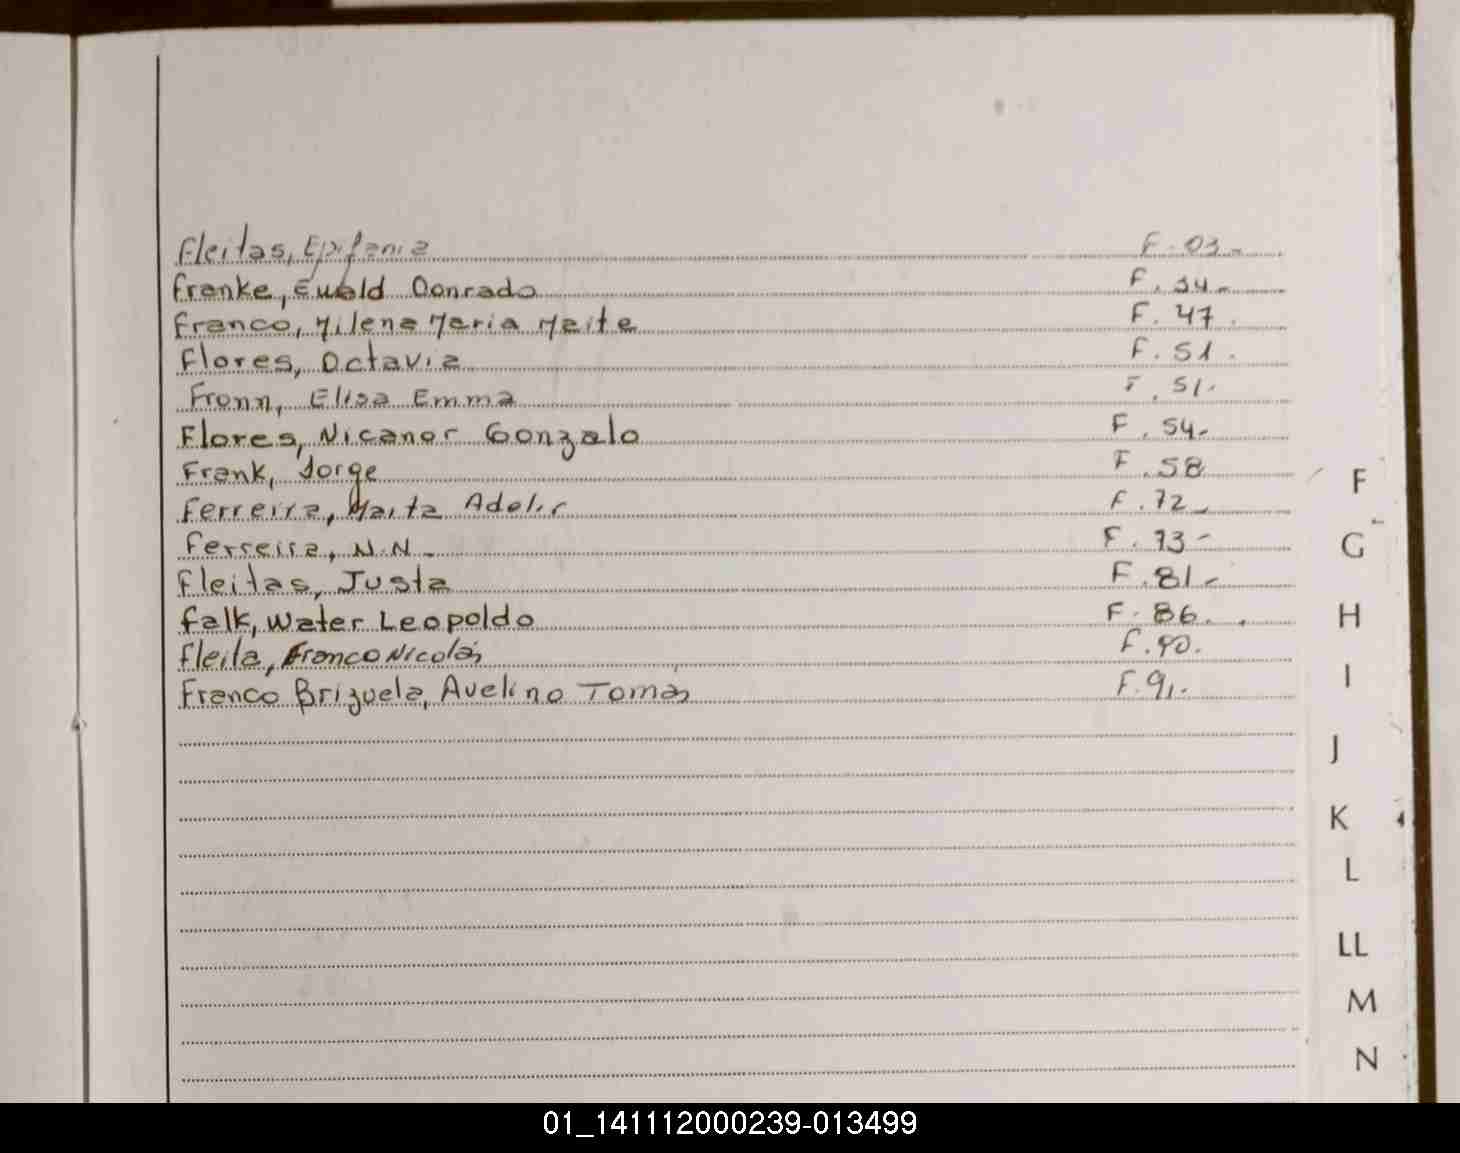 Fleitas, Epifania F. 03.-
Franke, Ewald Conrado F. 34.-
Franco, Milena Maria Maite F. 47.
Flores, Octavia F. 51.
Fronn, Elisa Emma F. 51.
Flores, Nicanor Gonzalo F. 54.-
Frank, Jorge F. 58
Ferreira, Marta Adelir F. 72.-
Ferreira, N.N. F. 73-
Fleitas, Justa F. 81.-
Falk, Water Leopoldo F. 86.
Fleita, Franco Nicolás F. 90.
Franco Brizuela, Avelino Tomás F. 91.
F
G
H
I
J
K
L
LL
M
N
01_141112000239-013499